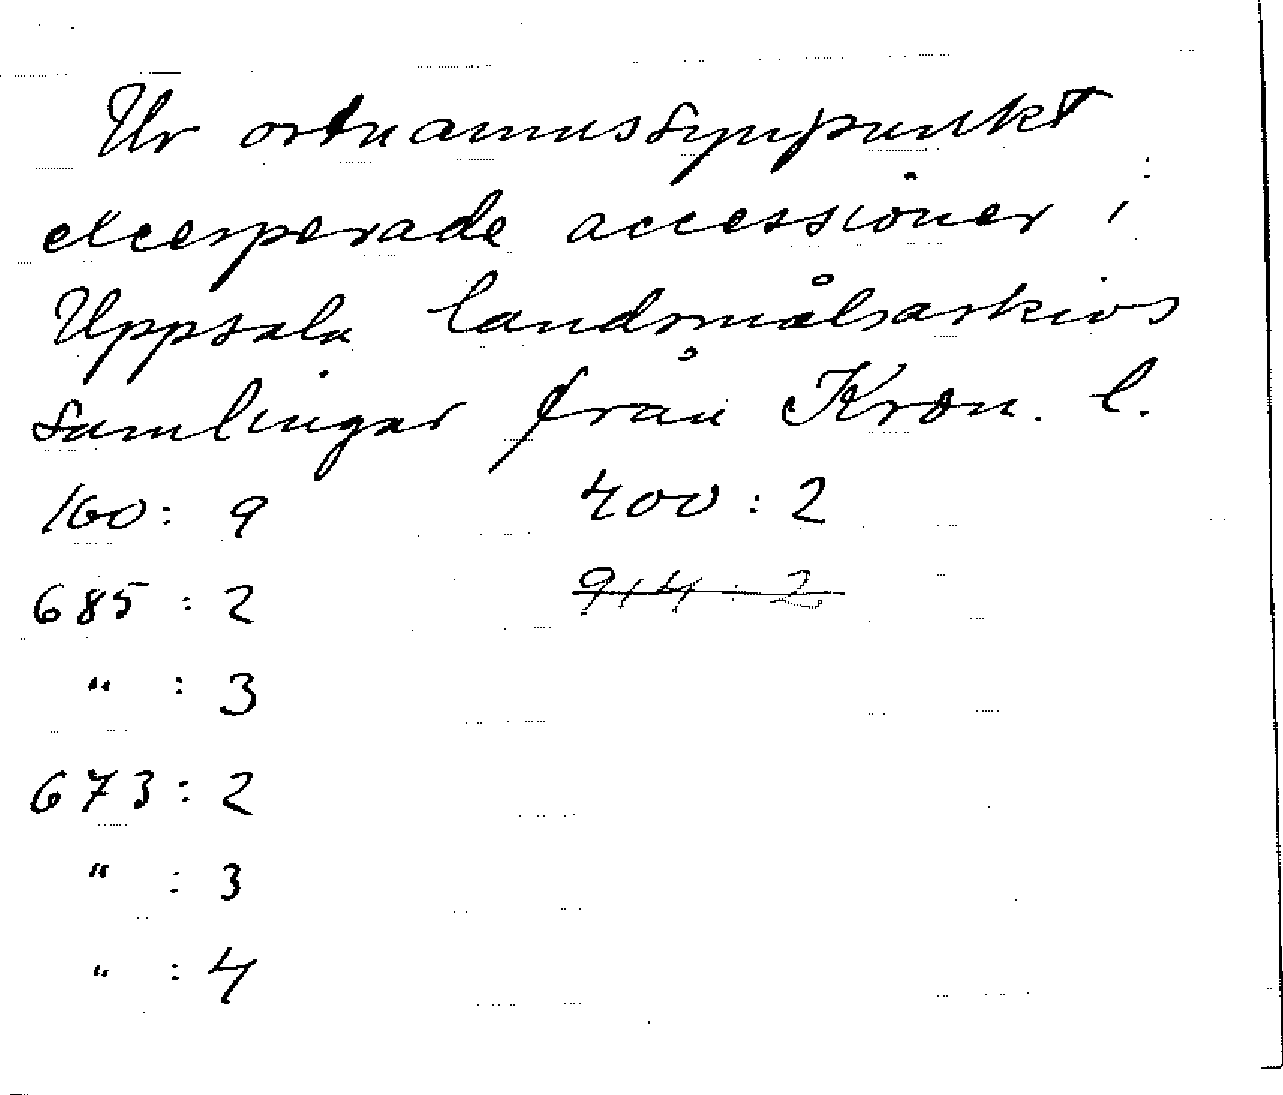 Ur ortnamnssynpunkt
excerperade accessioner i
Uppsala landsmålsarkivs
samlingar från Kron. l.
160: 9
685 : 2
" : 3
673 : 2
" : 3
" : 4
400 : 2
914 : 2